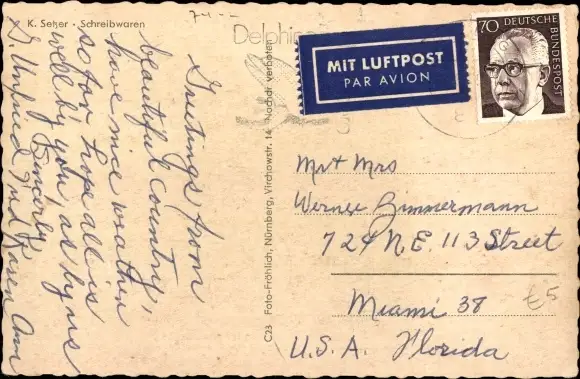 K. Setzer · Schreibwaren
Greetings from
beautiful country,
have nice weather
so far hope all is
well by you, as by us
Sincerely
S. and Karen Ann
C23 Foto-Fröhlich, Nürnberg, Virchowstr. 14 Nachdr. verboten
Delphin
MIT LUFTPOST
PAR AVION
70 DEUTSCHE
BUNDESPOST
Mr + Mrs
Werner Zimmermann
729 N.E. 113 Street
Miami 38
U.S.A. Florida
£5